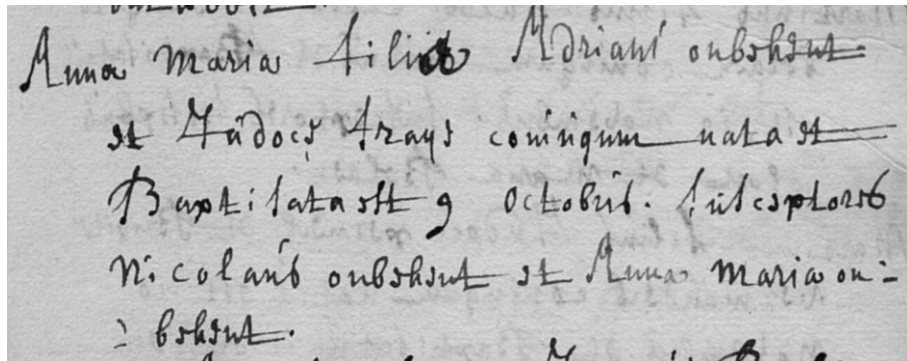 Anna Maria filia Adriani onbekent
et Judoci frays coniugum nata et
Baptisata est 9 Octobris. susceptores
Nicolaus onbekent et Anna Maria on=
=bekent.